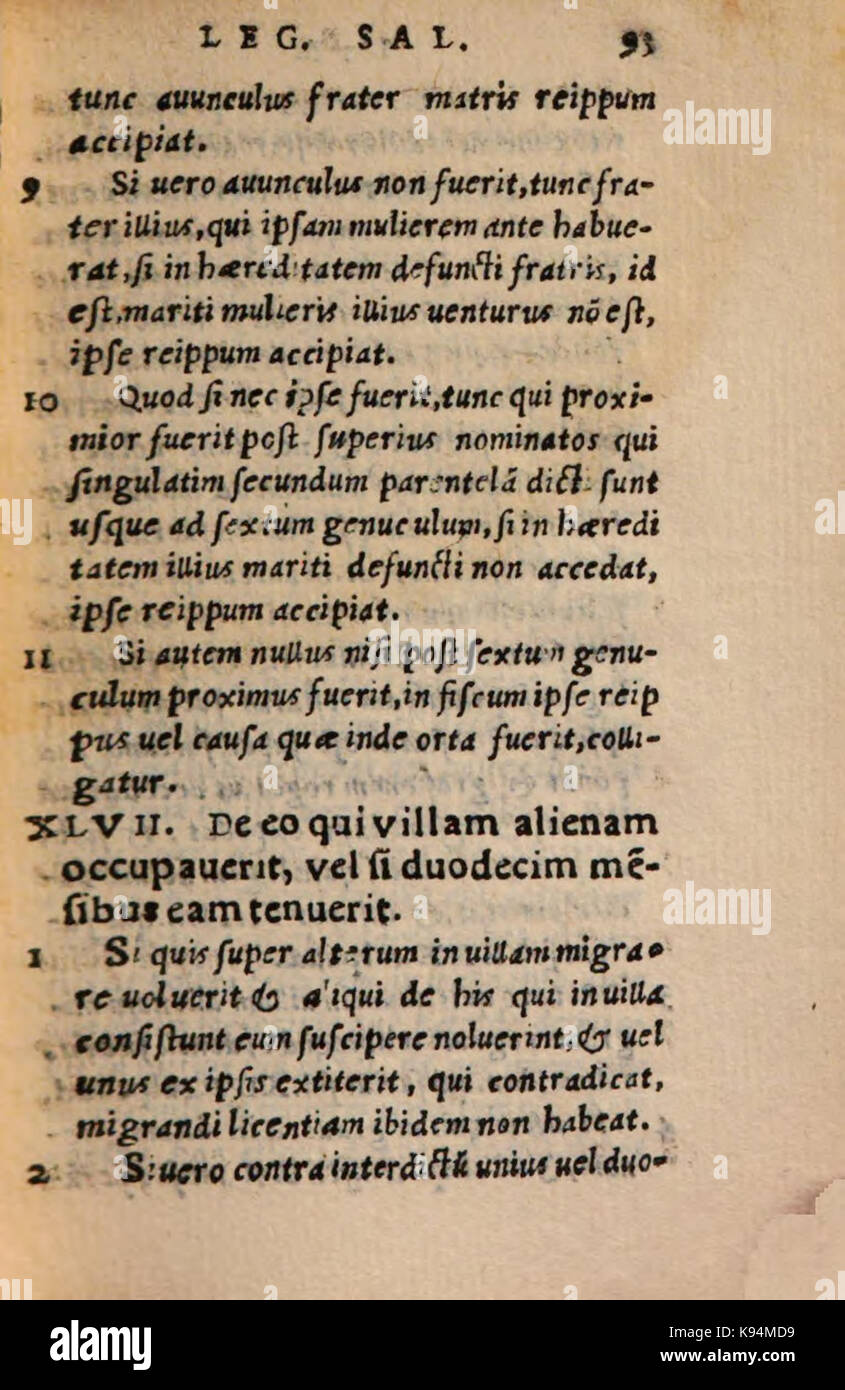 LEG. SAL. 93
tunc auunculus frater matris reippum
accipiat.
9 Si uero auunculus non fuerit, tunc fra-
ter illius, qui ipſam mulierem ante habue-
rat, ſi in hæreditatem defuncti fratris, id
eſt, mariti mulieris illius uenturus nō eſt,
ipſe reippum accipiat.
10 Quod ſi nec ipſe fuerit, tunc qui proxi-
mior fuerit poſt ſuperius nominatos qui
ſingulatim ſecundum parentelā dicti ſunt
uſque ad ſextum genuculum, ſi in hæredi
tatem illius mariti defuncti non accedat,
ipſe reippum accipiat.
11 Si autem nullus niſi poſt ſextum genu-
culum proximus fuerit, in fiſcum ipſe reip
pus uel cauſa quæ inde orta fuerit, colli-
gatur.
XLVII. De eo qui villam alienam
occupauerit, vel ſi duodecim mē-
ſibus eam tenuerit.
1 Si quis ſuper alterum in uillam migra-
re uoluerit & aliqui de his qui in uilla
conſiſtunt eum ſuſcipere noluerint, & uel
unus ex ipſis extiterit, qui contradicat,
migrandi licentiam ibidem non habeat.
2 Si uero contra interdictū unius uel duo-
alamy
alamy
alamy
K94MD9
www.alamy.com